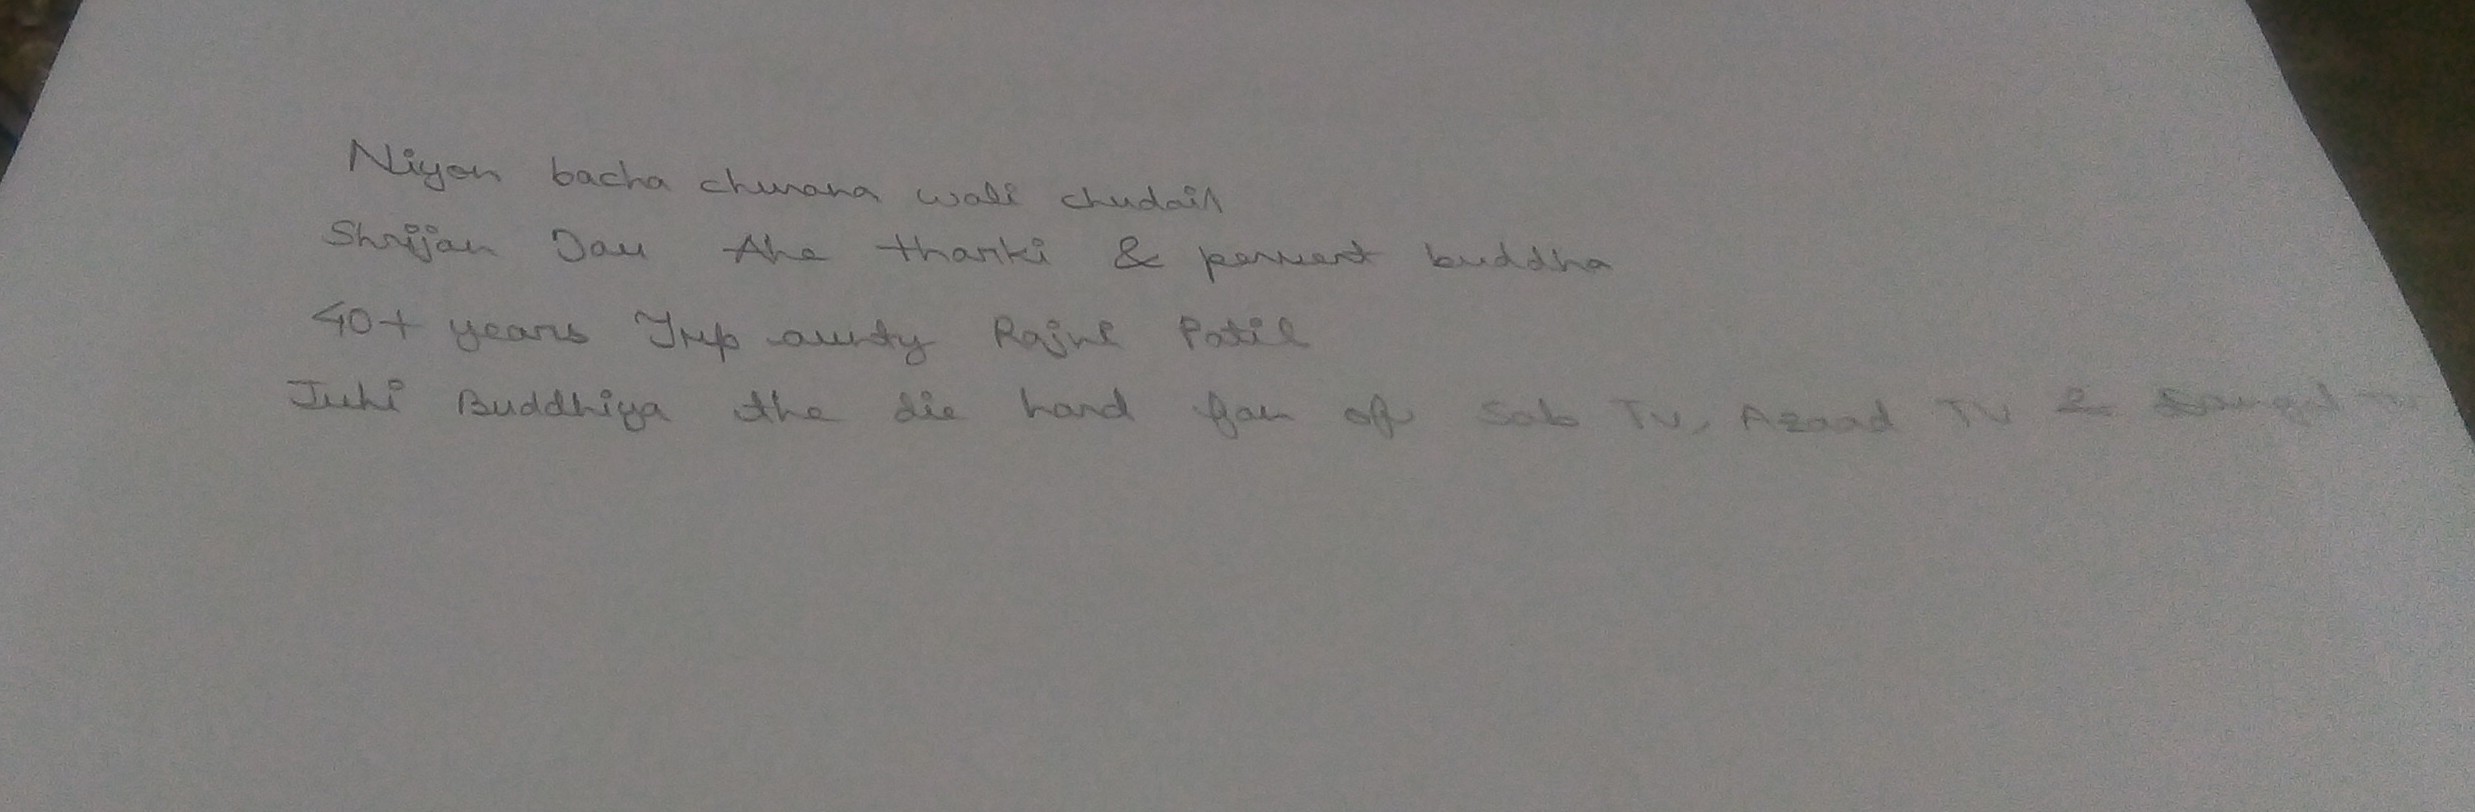 Niyon bacha churana wali chudail
Shrijan Jau the tharki & pervert buddha
40+ years Trp aunty Rajni Patil
Juhi Buddhiya the die hard fan of Sab TV, Azaad TV &